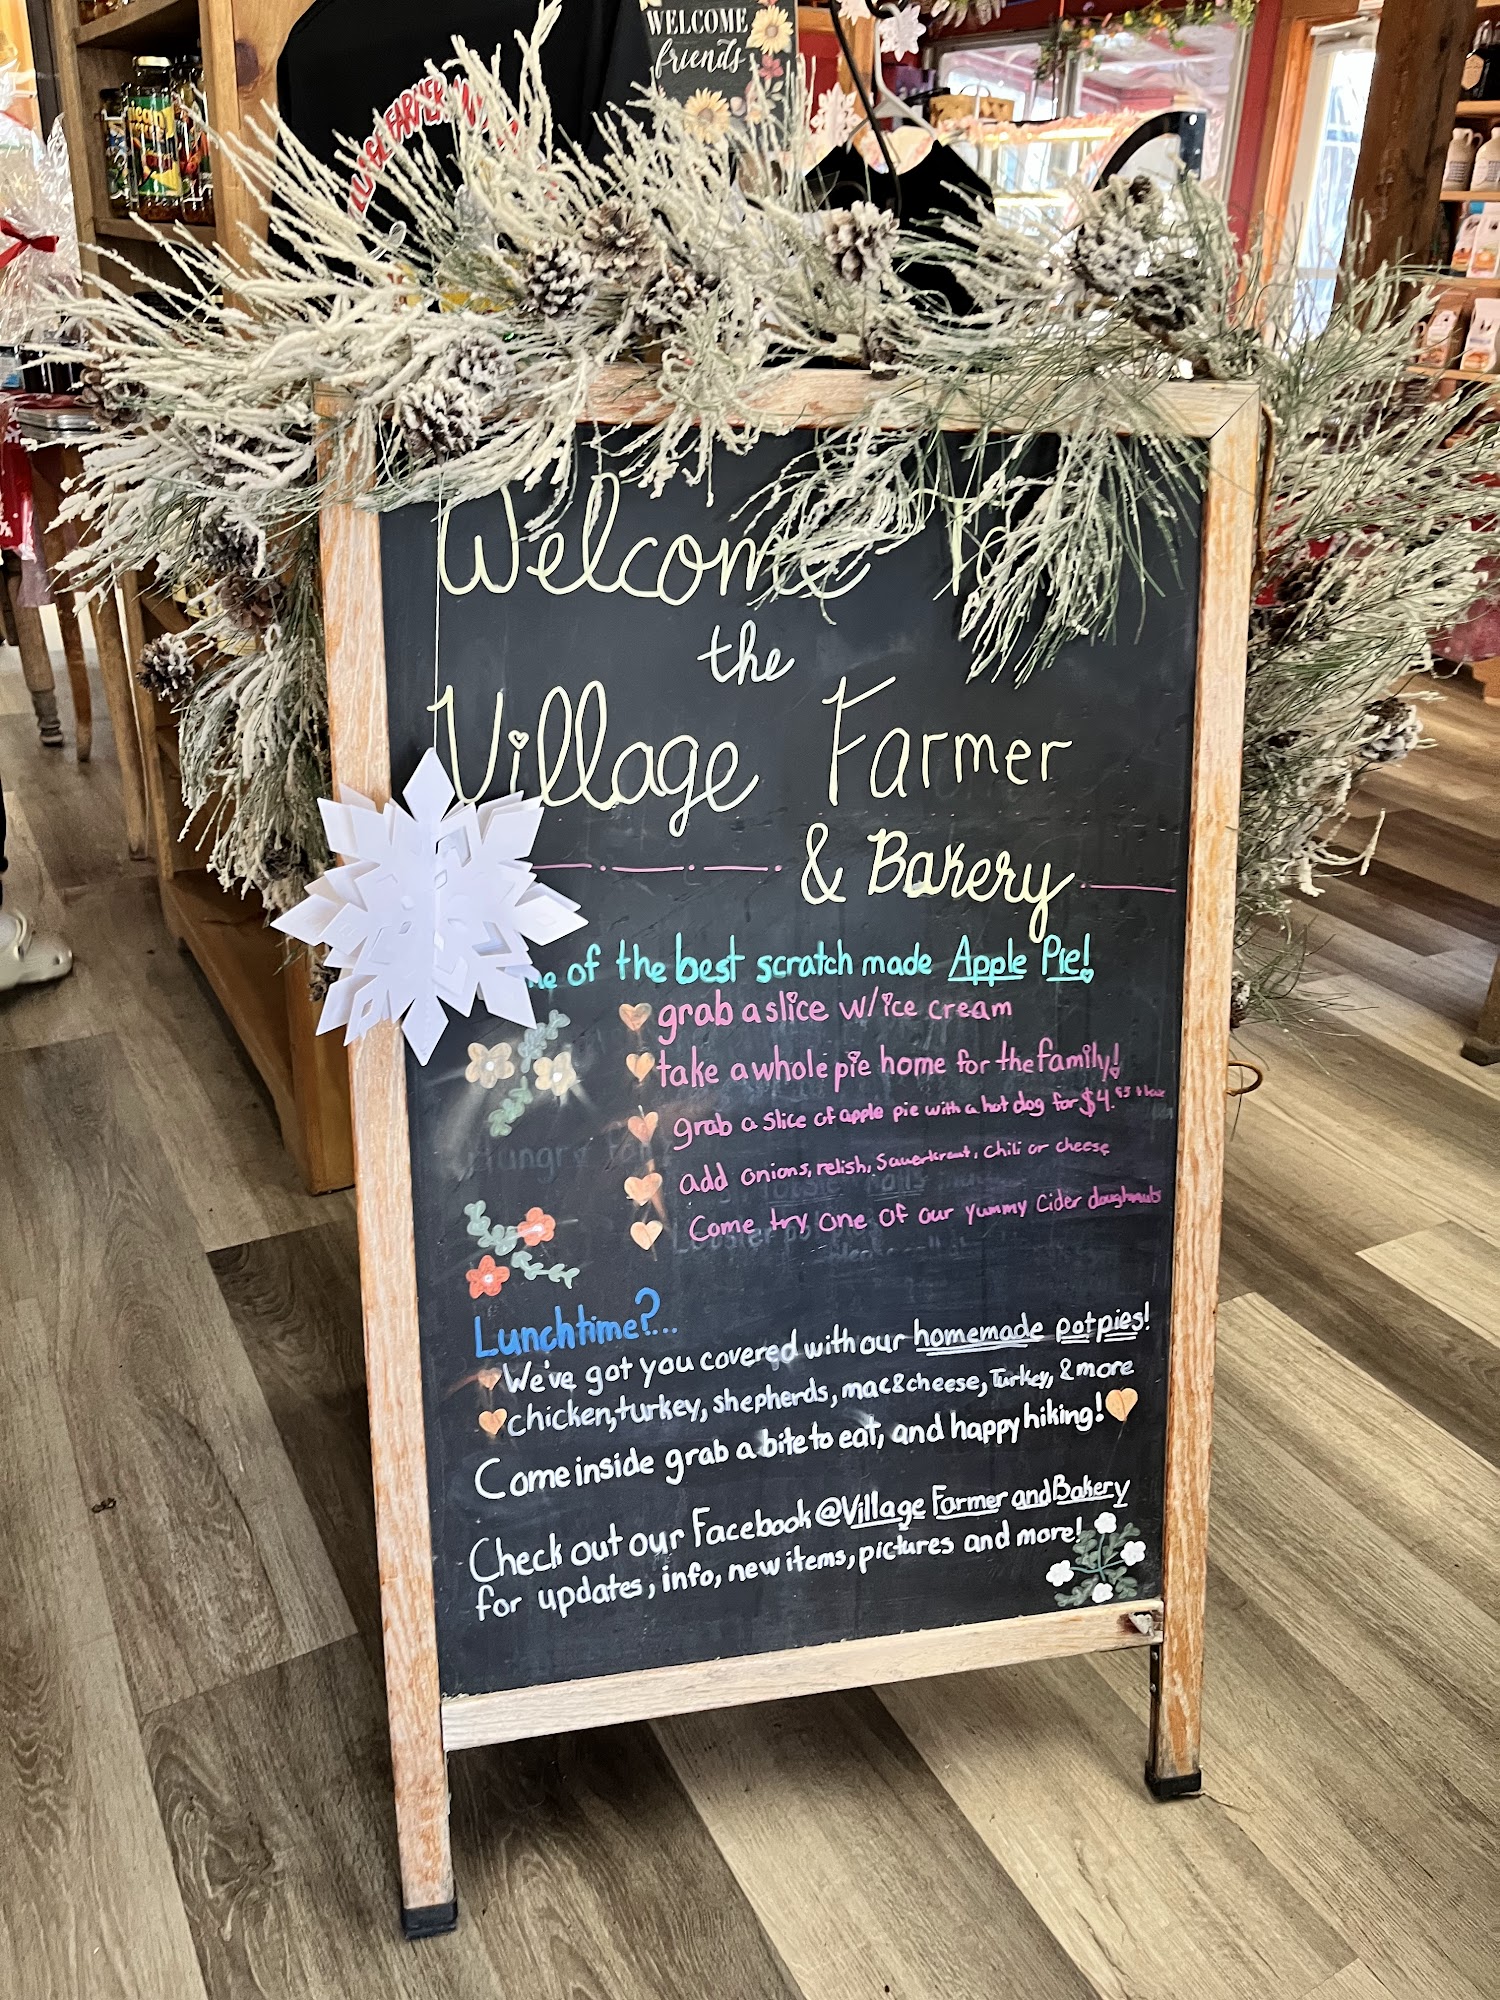 WELCOME
friends
Welcome
the
Village Farmer
& Bakery
of the best scratch made Apple Pie!
grab a slice w/ice cream
take a whole pie home for the family!
grab a slice of apple pie with a hot dog for $4.
add onions, relish, Sauerkraut, chili or cheese
Come try one of our yummy Cider doughnuts
Lunchtime?...
We've got you covered with our homemade potpies!
chicken, turkey, shepherds, mac&cheese, Turkey, & more
Come inside grab a bite to eat, and happy hiking!
Check out our Facebook @Village Farmer and Bakery
for updates, info, new items, pictures and more!